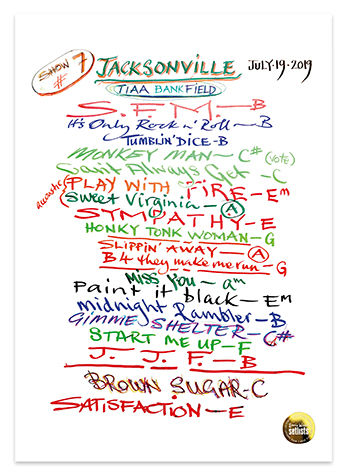 SHOW # 7
JACKSONVILLE
JULY·19·2019
TIAA BANK FIELD
S.F.M.—B
It's Only Rock n' Roll—B
TUMBLIN' DICE-B
MONKEY MAN—C# (VOTE)
Can't Always Get -C
PLAY WITH FIRE—Em
Acoustic
Sweet Virginia—A
SYMPATHY—E
HONKY TONK WOMAN—G
SLIPPIN' AWAY—A
B4 they make me run—G
Miss You—am
Paint it black—Em
midnight Rambler—B
GIMME SHELTER—C#
START ME UP—F
J. J. F.—B
BROWN SUGAR-C
SATISFACTION—E
setlists